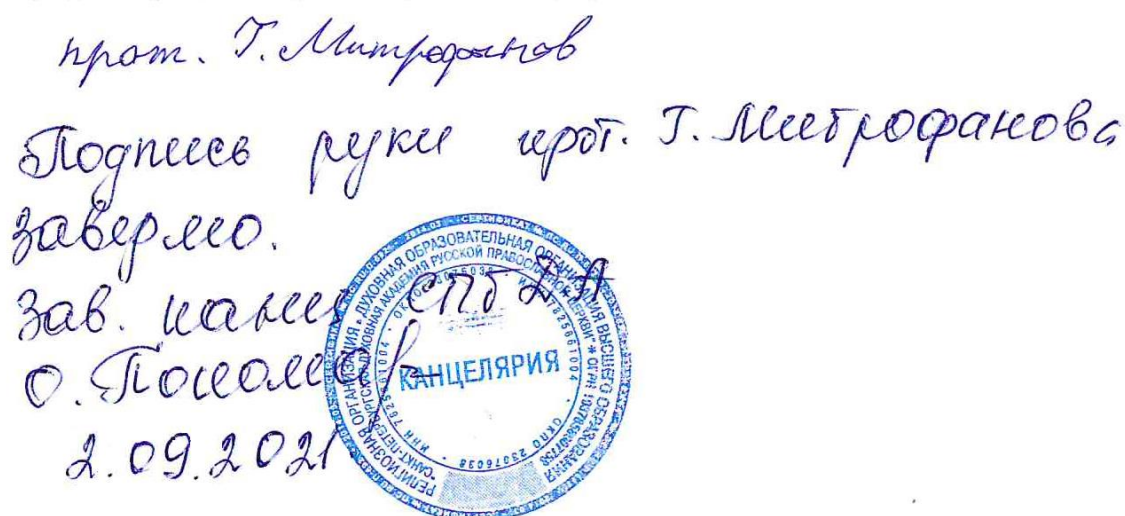 прот. Г. Митрофанов
Подпись руки прот. Г. Митрофанова
заверяю.
Зав. канц СПбДА
О.
2.09.2021
РЕЛИГИОЗНАЯ ОРГАНИЗАЦИЯ - ДУХОВНАЯ ОБРАЗОВАТЕЛЬНАЯ ОРГАНИЗАЦИЯ ВЫСШЕГО ОБРАЗОВАНИЯ
"САНКТ-ПЕТЕРБУРГСКАЯ ДУХОВНАЯ АКАДЕМИЯ РУССКОЙ ПРАВОСЛАВНОЙ ЦЕРКВИ"
ОКПО 23076038
КАНЦЕЛЯРИЯ